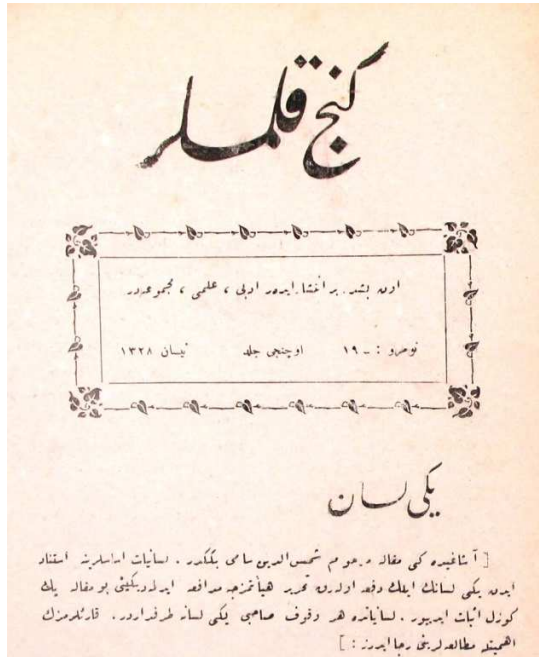 كنج قلملر
اون بشده بر انتشار ايدر ادبى ، علمى ، مجموعه‌در
نومرو : ـ ١٩ اوچنجى جلد نيسان ١٣٢٨
يكى لسان
[ آشاغيده كى مقاله مرحوم شمس الدين سامى بككدر . لسانيات اساسلرينه استناد
ايدن يكى لسانك ايلك دفعه اولارق تحرير هيأتمزجه مدافعه ايدلديكنى بو مقاله پك
كوزل اثبات ايدييور . لسانياتده هر وقوف صاحبى يكى لسانه طرفداردر . قارئلرمزك
اهميتله مطالعه لرينى رجا ايدرز : ]